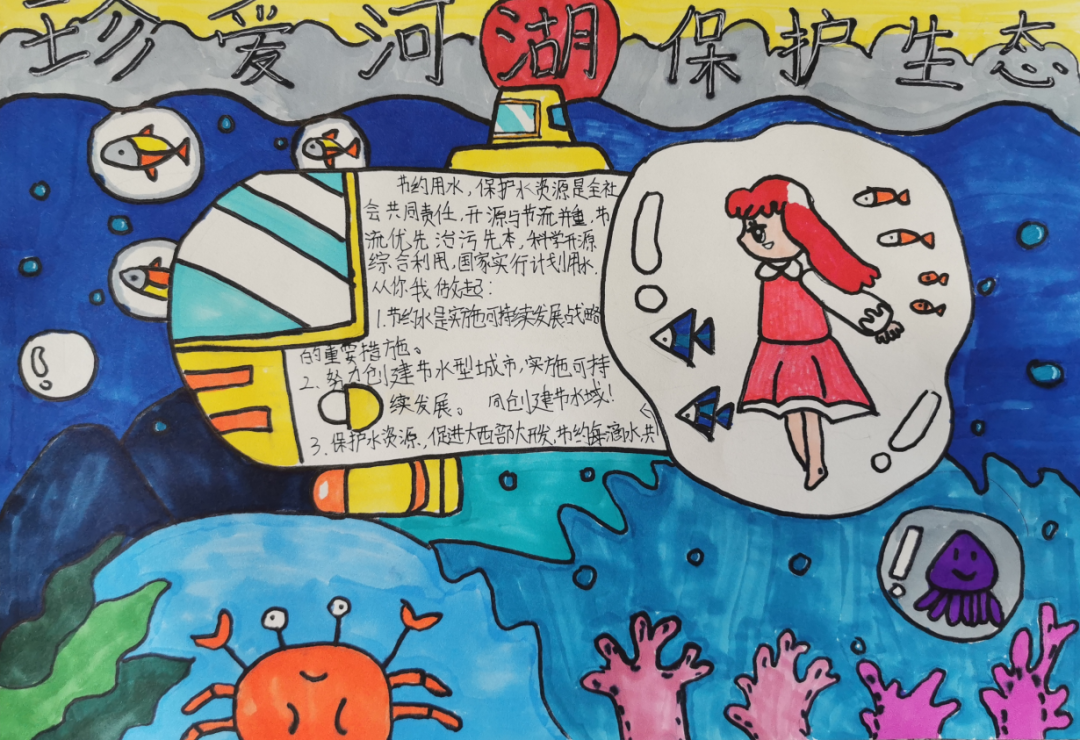 珍爱河湖保护生态
节约用水，保护水资源是全社
会共同责任，开源与节流并重，节
流优先治污先本，科学开源
综合利用，国家实行计划用水，
从你我做起：
1.节约水是实施可持续发展战略
的重要措施。
2.努力创建节水型城市，实施可持
续发展。 同创建节水城！
3.保护水资源，促进大西部大开发，节约每滴水，共